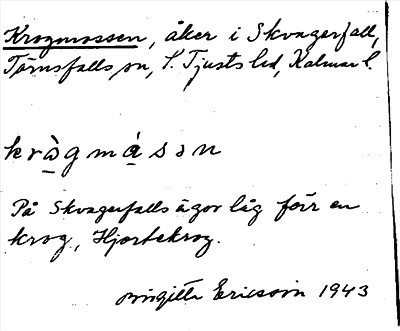 Krogmossen, åker i Skvagerfall,
Törnsfalls sn, S. Tjusts hd, Kalmar l.
kròg måsən
På Skvagerfalls ägor låg förr en
krog, Hjortekrog.
Birgitta Ericsson 1943